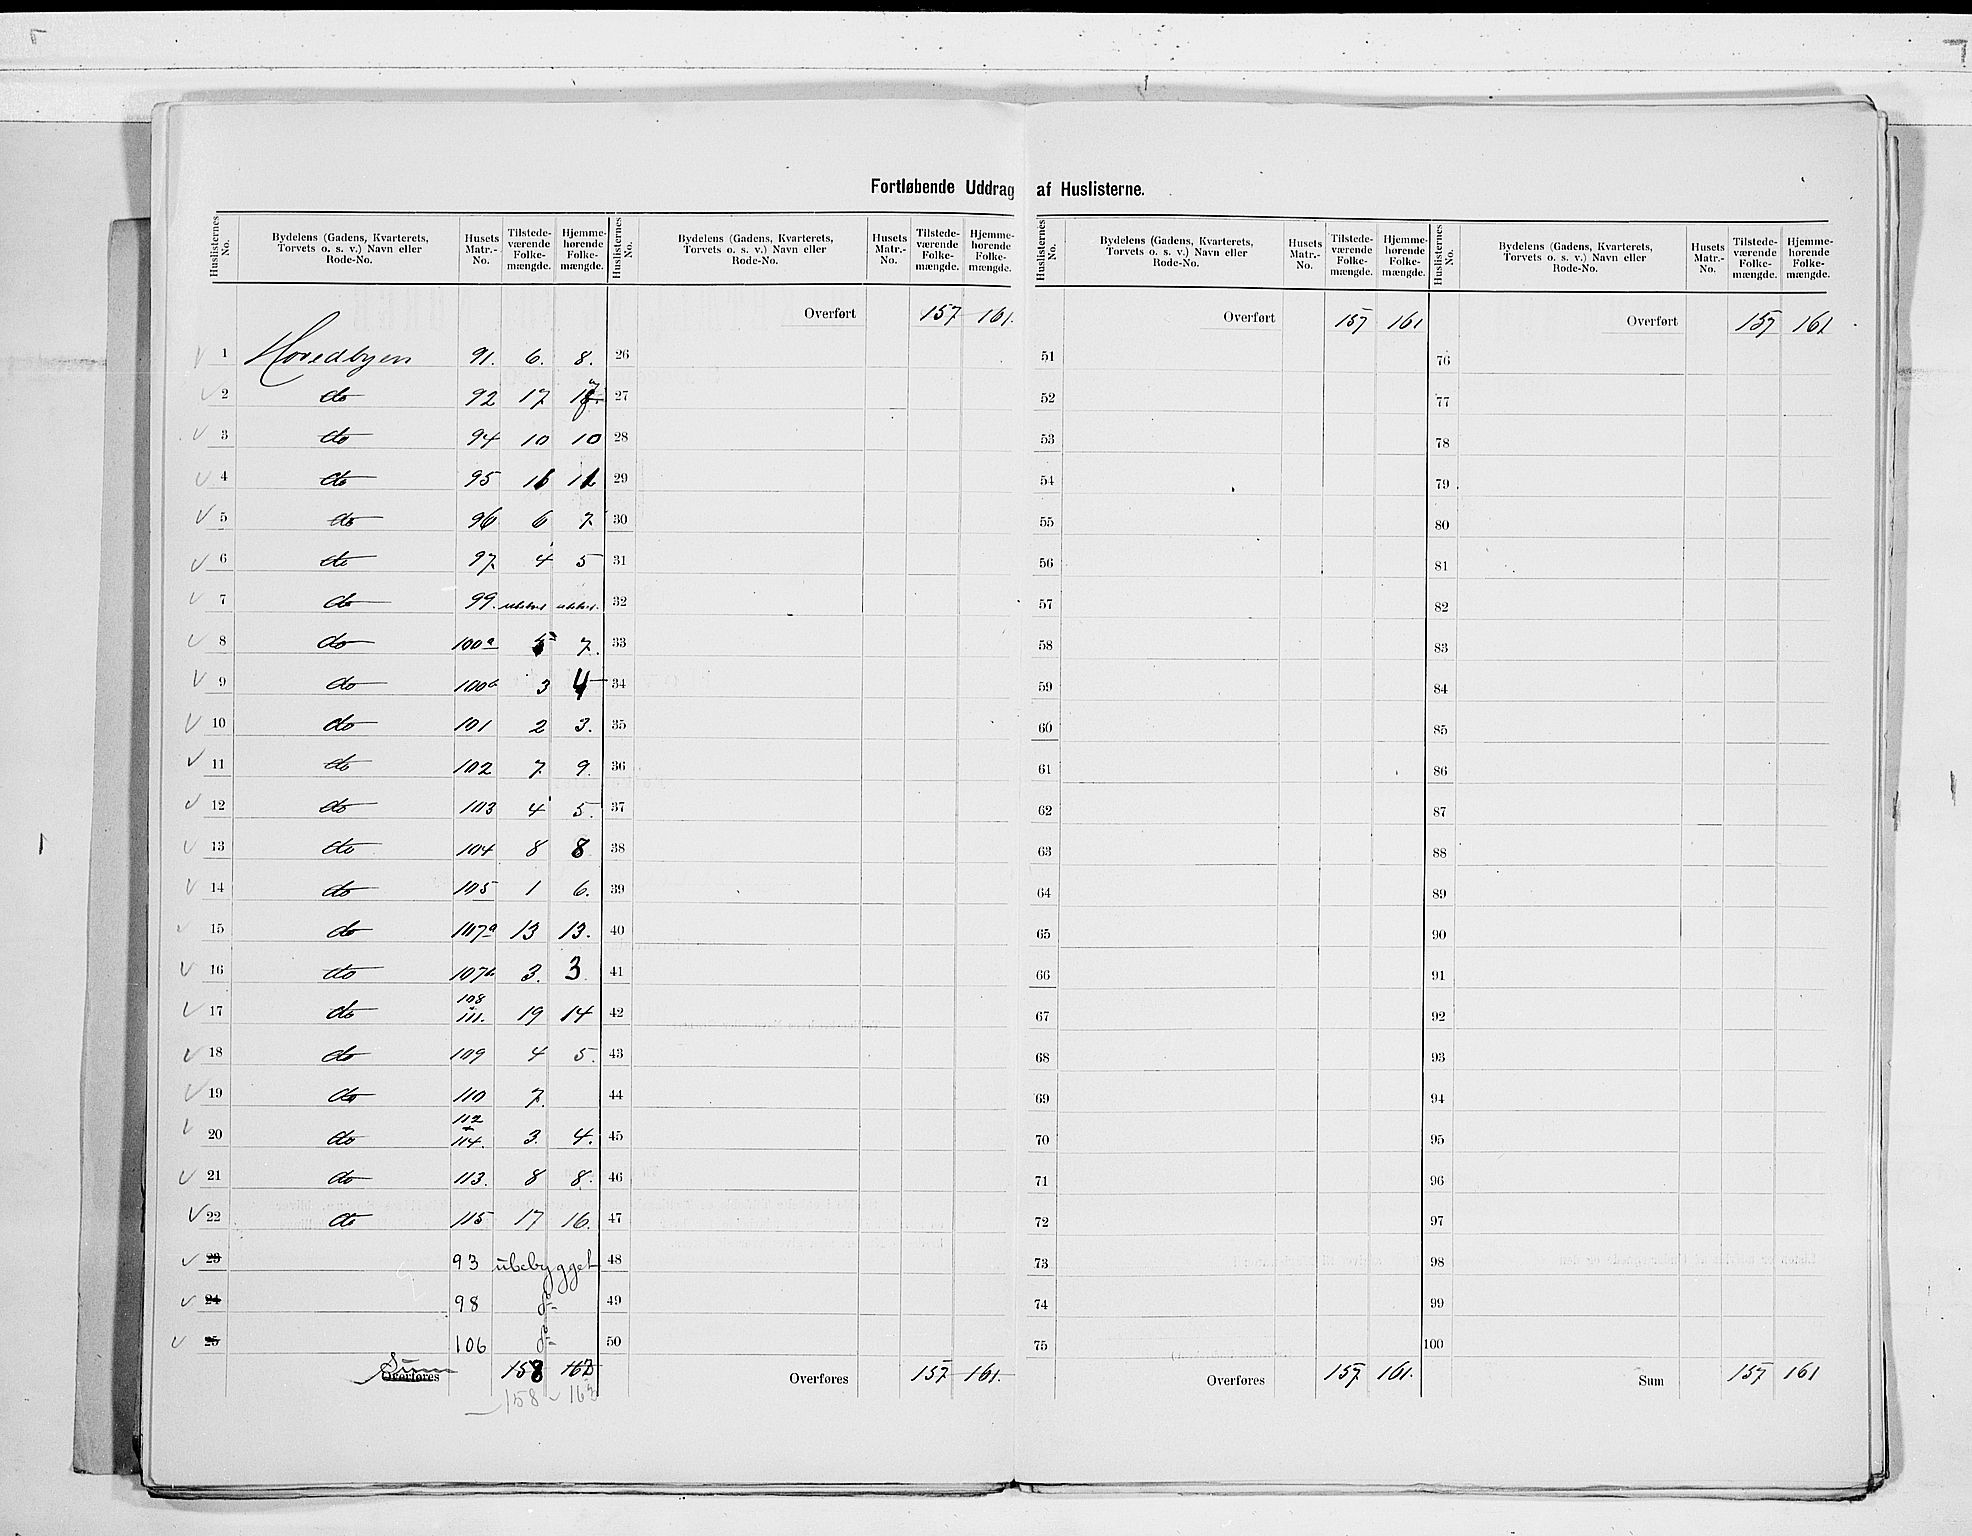 Fortløbende Uddrag af Huslisterne.
Huslisternes No. Bydelens (Gadens, Kvarterets, Torvets o. s. v.) Navn eller Rode-No. Husets Matr.-No. Tilstede-værende Folke-mængde. Hjemme-hørende Folke-mængde.
1 Hovedbyen 91. 6. 8.
2 do 92 17
3 do 94 10 10
4 do 95
5 do 96 6 7
6 do 97 4 5
7 do 99.
8 do 100a 5 7.
9 do 100b 3 4
10 do 101 2 3.
11 do 102 7 9
12 do 103 4 5.
13 do 104 8 8
14 do 105 1 6.
15 do 107a 13 13.
16 do 107b 3. 3.
17 do 108 111. 19 14
18 do 109 4 5.
19 do 110 7.
20 do 112 + 114. 3. 4.
21 do 113. 8 8.
22 do 115 17 16.
23 93 ubebygget
24 98 do
25 106 do
Sum Overføres 158
158 163
Huslisternes No. Bydelens (Gadens, Kvarterets, Torvets o. s. v.) Navn eller Rode-No. Husets Matr.-No. Tilstede-værende Folke-mængde. Hjemme-hørende Folke-mængde.
Overført 157 161.
26
27
28
29
30
31
32
33
34
35
36
37
38
39
40
41
42
43
44
45
46
47
48
49
50
Overføres 157 161.
Huslisternes No. Bydelens (Gadens, Kvarterets, Torvets o. s. v.) Navn eller Rode-No. Husets Matr.-No. Tilstede-værende Folke-mængde. Hjemme-hørende Folke-mængde.
Overført 157 161
51
52
53
54
55
56
57
58
59
60
61
62
63
64
65
66
67
68
69
70
71
72
73
74
75
Overføres 157 161.
Huslisternes No. Bydelens (Gadens, Kvarterets, Torvets o. s. v.) Navn eller Rode-No. Husets Matr.-No. Tilstede-værende Folke-mængde. Hjemme-hørende Folke-mængde.
Overført 157 161
76
77
78
79
80
81
82
83
84
85
86
87
88
89
90
91
92
93
94
95
96
97
98
99
100
Sum 157 161